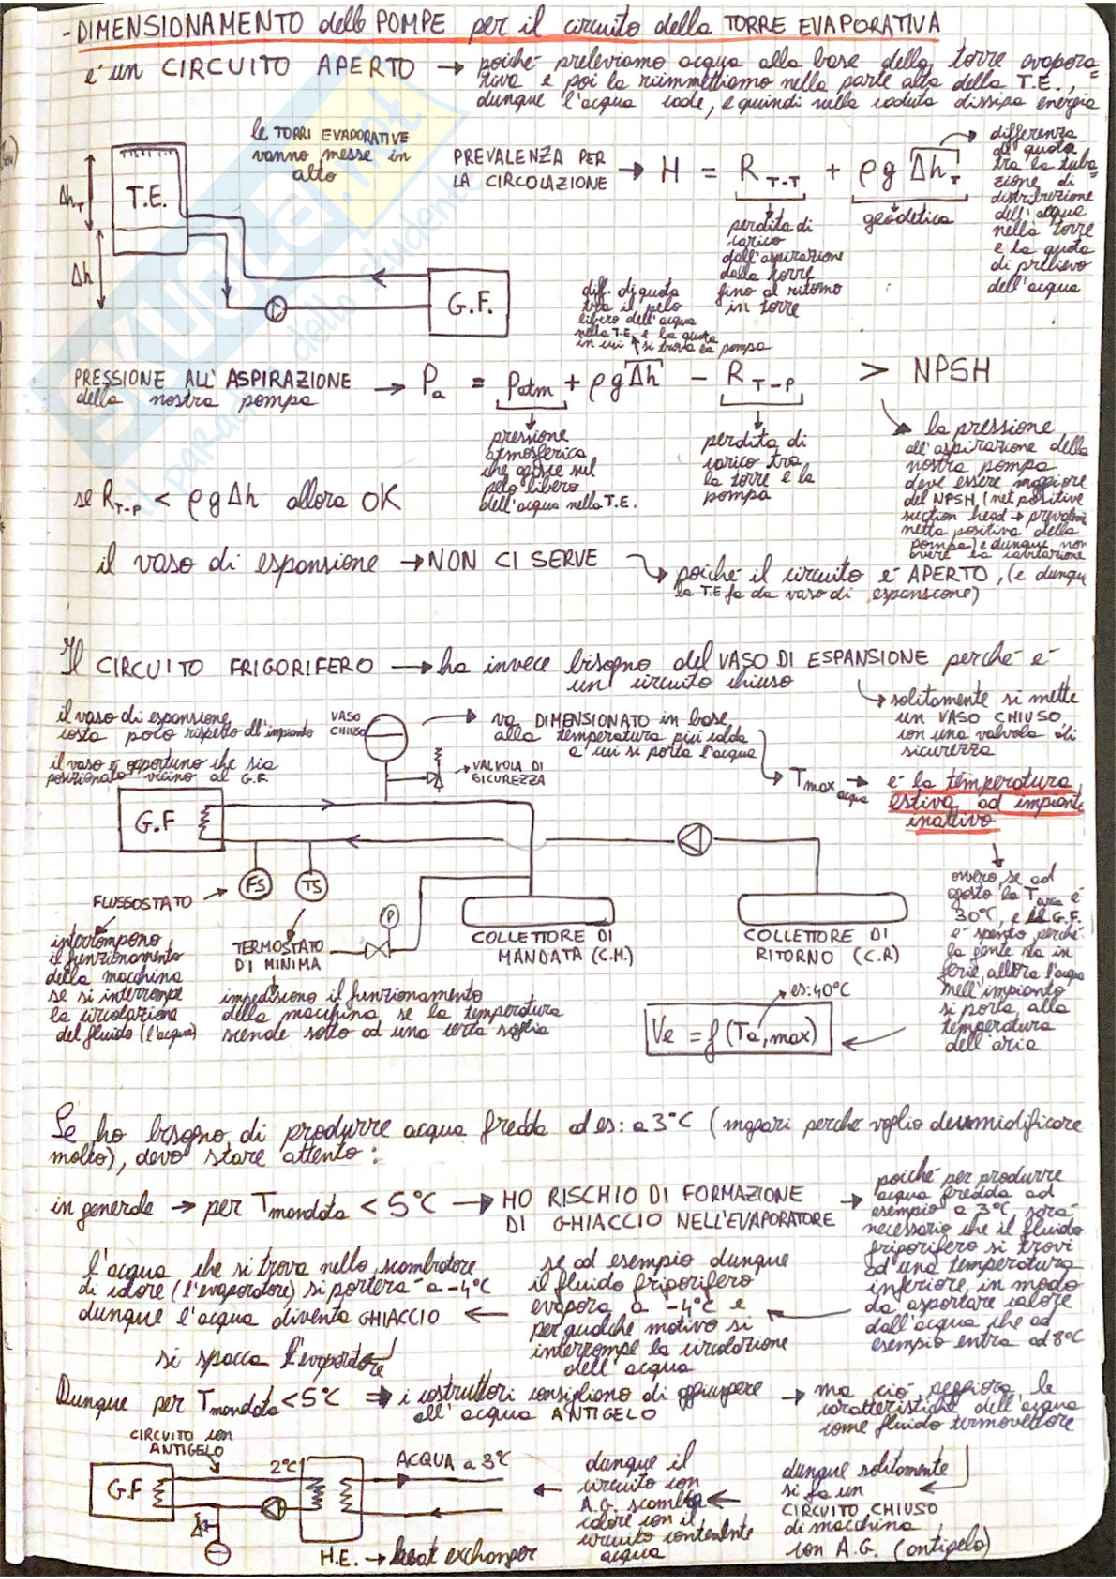 - DIMENSIONAMENTO delle POMPE per il circuito della TORRE EVAPORATIVA
è un CIRCUITO APERTO → poiché preleviamo acqua alla base della torre evapora=
tiva e poi la riimmettiamo nella parte alta della T.E.,
dunque l'acqua cade, e quindi nella caduta dissipa energia
le TORRI EVAPORATIVE
vanno messe in
alto
Δh_T
T.E.
Δh
G.F.
PREVALENZA PER
LA CIRCOLAZIONE → H = R_T-T + ρ g Δh_T
perdita di
carico
dall'aspirazione
dalla torre
fino al ritorno
in torre
geodetica
differenza
di quota
tra la tuba=
zione di
distribuzione
dell'acqua
nella torre
e la quota
di prelievo
dell'acqua
diff. di quota
tra il pelo
libero dell'acqua
nella T.E. e la quota
in cui si trova la pompa
PRESSIONE ALL'ASPIRAZIONE
della nostra pompa → Pa = Patm + ρ g Δh - R_T-P > NPSH
pressione
atmosferica
che agisce sul
pelo libero
dell'acqua nella T.E.
perdita di
carico tra
la torre e la
pompa
la pressione
all'aspirazione della
nostra pompa
deve essere maggiore
del NPSH (net positive
suction head → prevalenza
netta positiva della
pompa) e dunque non
avere la cavitazione
se R_T-P < ρ g Δh allora OK
il vaso di espansione → NON CI SERVE
poiché il circuito è APERTO, (e dunque
la T.E fa da vaso di espansione)
Il CIRCUITO FRIGORIFERO → ha invece bisogno del VASO DI ESPANSIONE perché è
un circuito chiuso
solitamente si mette
un VASO CHIUSO
con una valvola di
sicurezza
il vaso di espansione
costa poco rispetto all'impianto
il vaso è opportuno che sia
posizionato vicino al G.F.
VASO
CHIUSO
va DIMENSIONATO in base
alla temperatura più calda
a cui si porta l'acqua
VALVOLA DI
SICUREZZA
Tmax acqua → è la temperatura
estiva ad impianto
inattivo
G.F
FS
TS
P
FLUSSOSTATO
interrompono
il funzionamento
della macchina
se si interrompe
la circolazione
del fluido (l'acqua)
TERMOSTATO
DI MINIMA
impediscono il funzionamento
della macchina se la temperatura
scende sotto ad una certa soglia
COLLETTORE DI
MANDATA (C.M.)
COLLETTORE DI
RITORNO (C.R)
ovvero se ad
agosto la Taria è
30°C, e il G.F.
è spento perché
la gente sta in
ferie, allora l'acqua
nell'impianto
si porta alla
temperatura
dell'aria
es: 40°C
Ve = f (Ta,max)
Se ho bisogno di produrre acqua fredda ad es: a 3°C (magari perché voglio deumidificare
molto), devo stare attento:
in generale → per Tmandata < 5°C → HO RISCHIO DI FORMAZIONE
DI GHIACCIO NELL'EVAPORATORE
poiché per produrre
acqua fredda ad
esempio a 3°C, sarà
necessario che il fluido
frigorifero si trovi
ad una temperatura
inferiore, in modo
da asportare calore
dall'acqua che ad
esempio entra ad 8°C
se ad esempio dunque
il fluido frigorifero
evapora a -4°C e
per qualche motivo si
interrompe la circolazione
dell'acqua
l'acqua che si trova nello scambiatore
di calore (l'evaporatore) si porterà a -4°C
dunque l'acqua diventa GHIACCIO
si spacca l'evaporatore
Dunque per Tmandata < 5°C ⇒ i costruttori consigliano di aggiungere
all'acqua ANTIGELO
ma ciò peggiora le
caratteristiche dell'acqua
come fluido termovettore
CIRCUITO con
ANTIGELO
G.F
2°C
ACQUA a 3°C
H.E. → heat exchanger
dunque il
circuito con
A.G. scambia
calore con il
circuito contenente
acqua
dunque solitamente
si fa un
CIRCUITO CHIUSO
di macchina
con A.G. (antigelo)